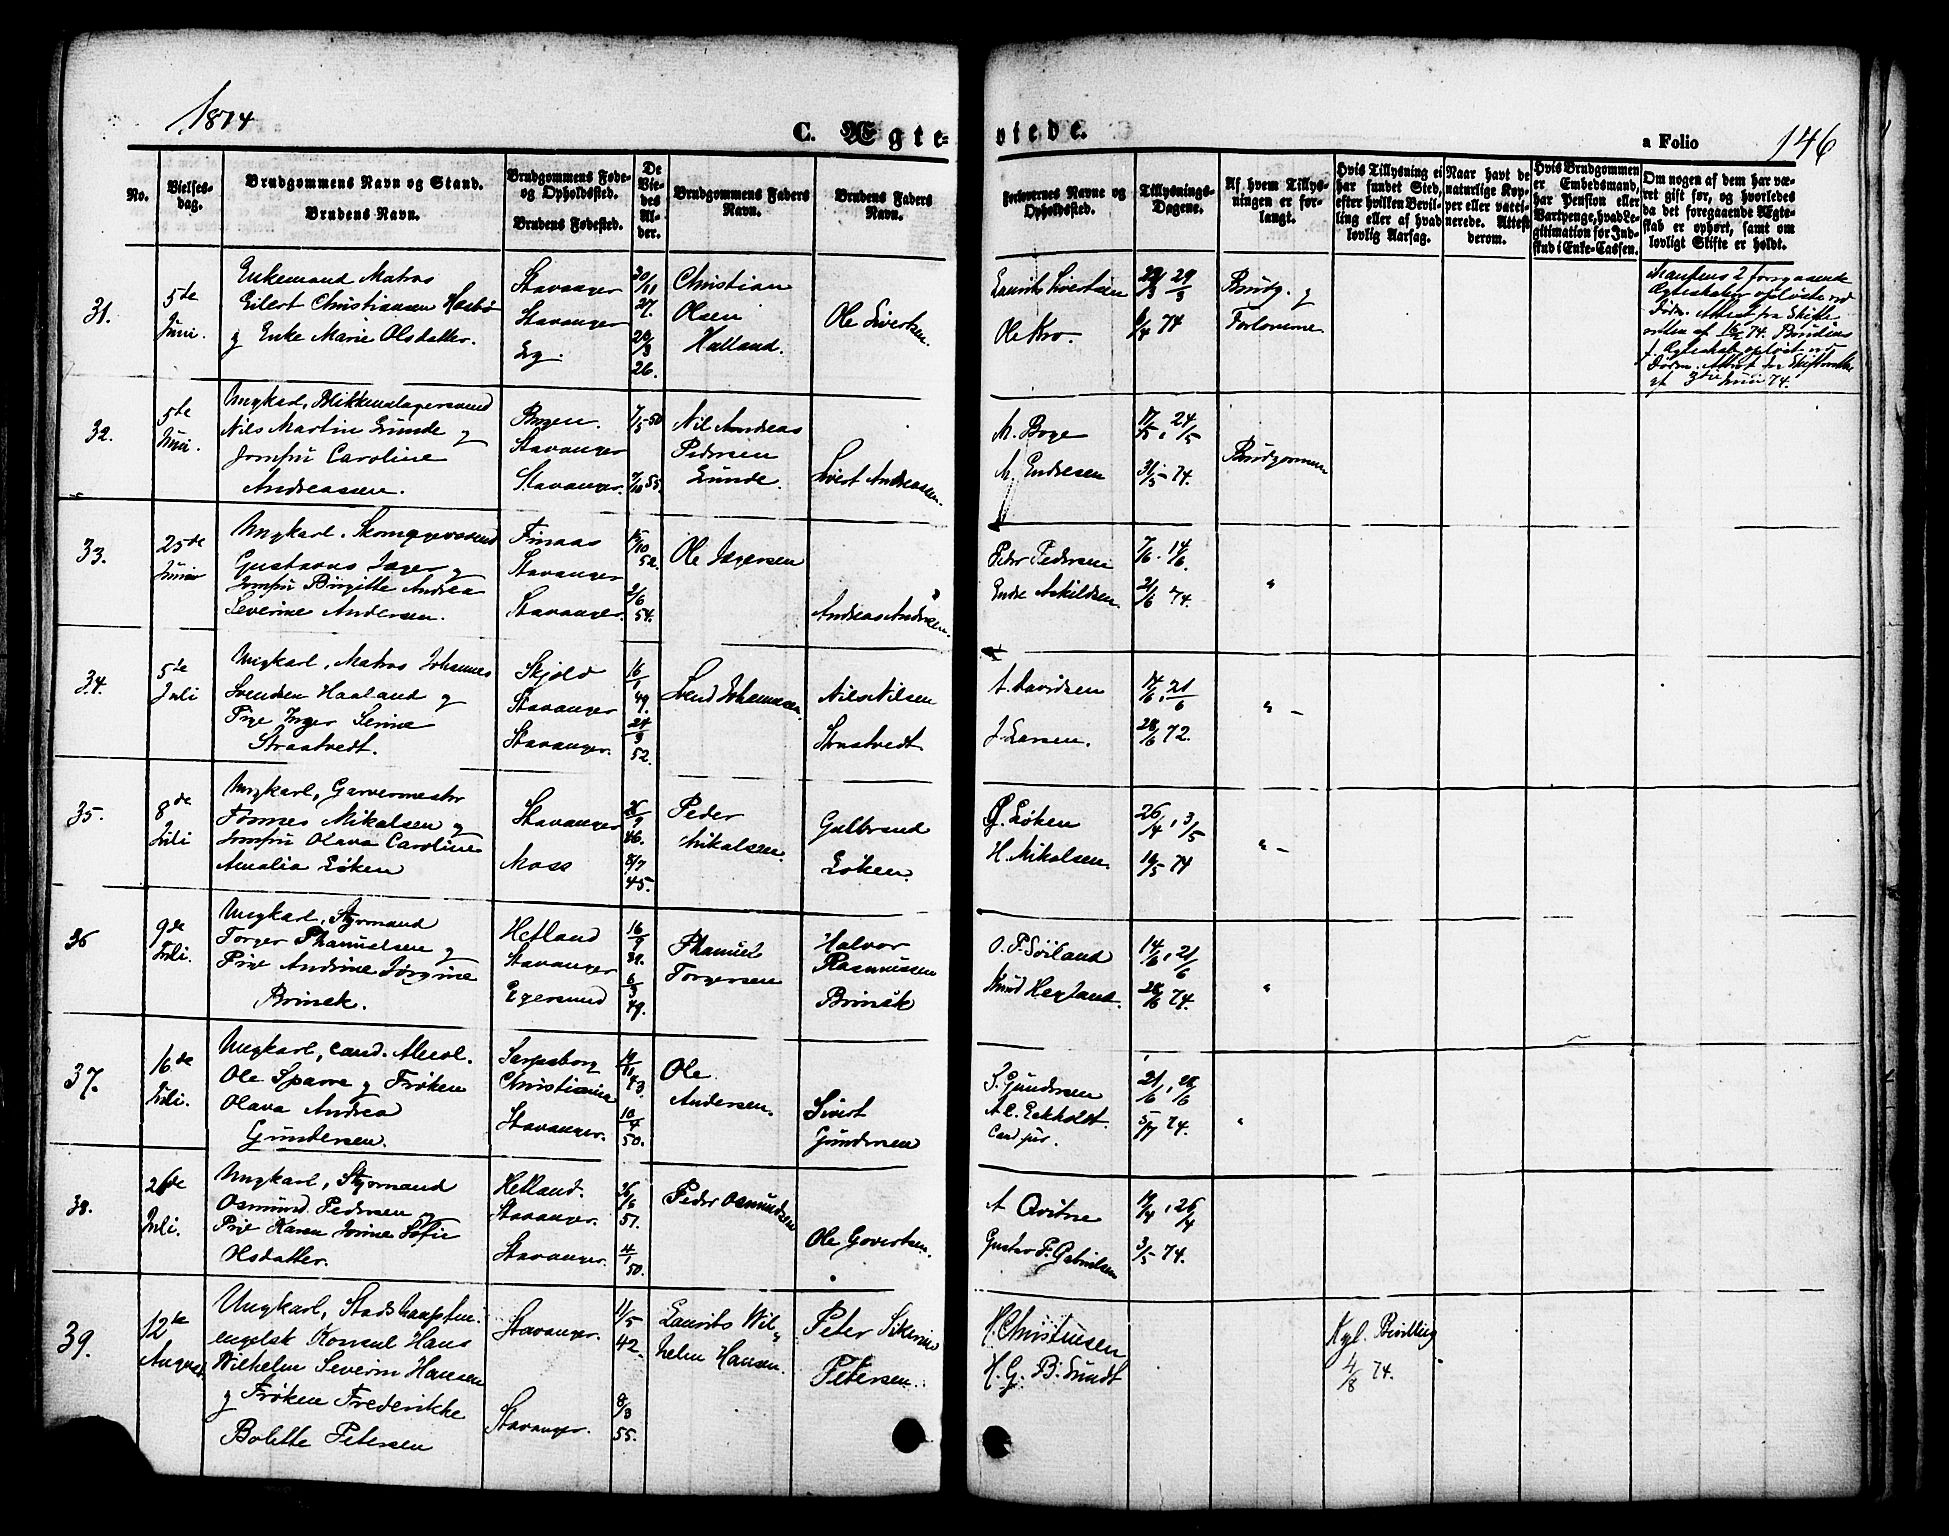 1874
C. Ægteviede.
a Folio 146
No.
Vielsesdag.
Brudgommens Navn og Stand.
Brudens Navn.
Brudgommens Føde- og Opholdssted.
Brudens Fødested.
De Viedes Alder.
Brudgommens Faders Navn.
Brudens Faders Navn.
Forlovernes Navne og Opholdssted.
Tillysnings-Dagene.
Af hvem Tillysningen er forlangt.
Hvis Tillysning ei har fundet Sted, efter hvilken Bevilling eller af hvad lovlig Aarsag.
Naar havt de naturlige Kopper eller vaccinerede. Attest derom.
Hvis Brudgommen er Embedsmand, har Pension eller Vartpenge, hvad Legitimation for Indskud i Enke-Cassen.
Om nogen af dem har været gift før, og hvorledes da det foregaaende Ægteskab er ophørt, samt om lovligt Skifte er holdt.
31.
5te Juni.
Enkemand Matros
Eilert Christiansen
g Enke Marie Olsdatter.
Stavanger
Stavanger
Eg.
30/11 27.
20/3 26.
Christian
Olsen
Halland.
Ole Sivertsen.
Laurits Sivertsen
Ole Kro.
29/3
74
Brudg. g
Forloverne
32.
5te Juni.
Ungkarl, Blikkenslagersvend
Nils Martin Lunde g
Jomfru Caroline
Andreassen.
Stavanger
Stavanger.
7/5 50
7/10 55.
Nil Andreas
Pedersen
Lunde.
Sivert Andreassen.
M. Boge
A. Endresen
17/5, 24/5
31/5 - 74.
Brudgommen
33.
25de Juni
Ungkarl. Skomagersvend
Gustavus Jager g
Jomfru Birgitte Andrea
Severine Andersen.
Finaas
Stavanger
Stavanger.
52.
2/6 54.
Ole Jagersen
Andreas Andersen.
Peder Pedersen
Endre Askildsen
7/6. 14/6.
21/6 74.
"
34.
5te Juli
Ungkarl, Matros Johannes
Svendsen Haaland g
Pige Inger Serine
Straatvedt.
Skjold
Stavanger
Stavanger.
16/1 49.
24/9 52.
Svend Johannesen.
Nils Nilsen
Straatvedt
A. Davidsen
J. Larsen.
14/6, 21/6
28/6 72.
" -
35.
8de Juli
Ungkarl, Garvermester
Tønnes Nikalsen g
Jomfru Olava Caroline
Amalia Løken
Stavanger
Moss
26/9 46.
8/7 45.
Peder
Nikalsen.
Gulbrand
Løken.
G. Løken
H. Nikalsen.
26/4, 3/5
10/5 - 74
" -
36
9de Juli.
Ungkarl, Styrmand
Torger Phanuelsen g
Pige Andrine Jørgine
Brinck.
Hetland
Stavanger
Egersund
16/9
6/3 49.
Phanuel
Torgersen
Halvor
Rasmussen
Brinck
O. P. Soiland
Knud Hegland.
14/6, 21/6
28/6 74.
"
37.
16de Juli.
Ungkarl, cand. theol.
Ole Sparre g Frøken
Olava Andrea
Gundersen.
Sarpsborg
Christiania
Stavanger.
19/11 43.
10/4 50.
Ole
Andersen.
Sivert
Gundersen
S. Gundersen
A. C. Eckholdt.
Cand jur.
21/6, 28/6
5/7 74.
"
38.
26de Juli.
Ungkarl, Styrmand
Osmund Pedersen g
Pige Karen Jorine Sofie
Olsdatter.
Hetland.
Stavanger.
Stavanger.
26/6 51.
4/1 50.
Peder Osmundsen
Ole Govertsen.
A Qvitne
Gustav F. Gabrielsen
19/4, 26/4
3/5 - 74.
39.
12te August
Ungkarl, Stadshauptm.
engelsk Konsul Hans
Wilhelm Severin Hansen
g Frøken Frederikke
Bolette Petersen
Stavanger.
Stavanger.
11/5 42.
8/3 55.
Laurits Wil-
helm Hansen.
Peter
Petersen.
H. Christensen
H. G. B. Sundt
Kgl. Bevilling
4/8 74.